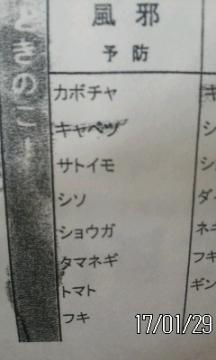 ときのこ
風邪
予防
カボチャ
キャベツ
サトイモ
シソ
ショウガ
タマネギ
トマト
フキ
キ
シ
シ
ダ
ネ
フキ
ギン
17/01/29